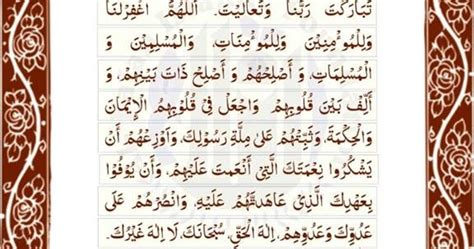 تَبَارَكْتَ رَبَّنَا وَتَعَالَيْتَ. اَللّٰهُمَّ اغْفِرْلَنَا
وَلِلْمُوءْمِنِيْنَ وَلِلْمُوءْمِنَاتِ، وَالْمُسْلِمِيْنَ وَ
الْمُسْلِمَاتِ، وَ أَصْلِحْهُمْ وَ أَصْلِحْ ذَاتَ بَيْنِهِمْ، وَ
أَلِّفْ بَيْنَ قُلُوْبِهِمْ وَاجْعَلْ فِيْ قُلُوْبِهِمُ الْإِيْمَانَ
وَالْحِكْمَةَ، وَثَبِّتْهُمْ عَلىٰ مِلَّةِ رَسُوْلِكَ، وَاَوْزِعْهُمْ أَنْ
يَشْكُرُوْا نِعْمَتَكَ الَّتِيْ أَنْعَمْتَ عَلَيْهِمْ، وَأَنْ يُوْفُوْا
بِعَهْدِكَ الَّذِيْ عَاهَدْتَهُمْ عَلَيْهِ، وَانْصُرْهُمْ عَلىٰ
عَدُوِّكَ وَعَدُوِّهِمْ، اِلٰهَ الْحَقِّ، سُبْحَانَكَ، لَا اِلٰهَ غَيْرُكَ.